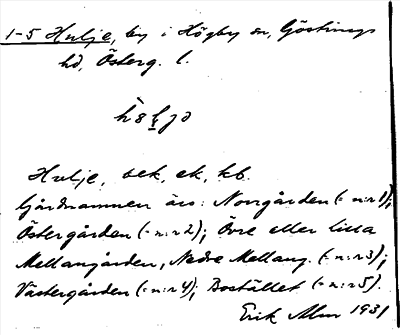 1-5 Hulje, by i Högby sn, Göstrings
hd, Österg. l.
Hulje, sek, ek, kb.
Gårdnamnen äro: Norrgården (= n:r 1);
Östergården (= n:r 2); Övre eller Lilla
Mellangården, Nedre Mellang. (= n:r 3);
Västergården (= n:r 4); Bostället (= n:r 5).
Erik Alm 1931